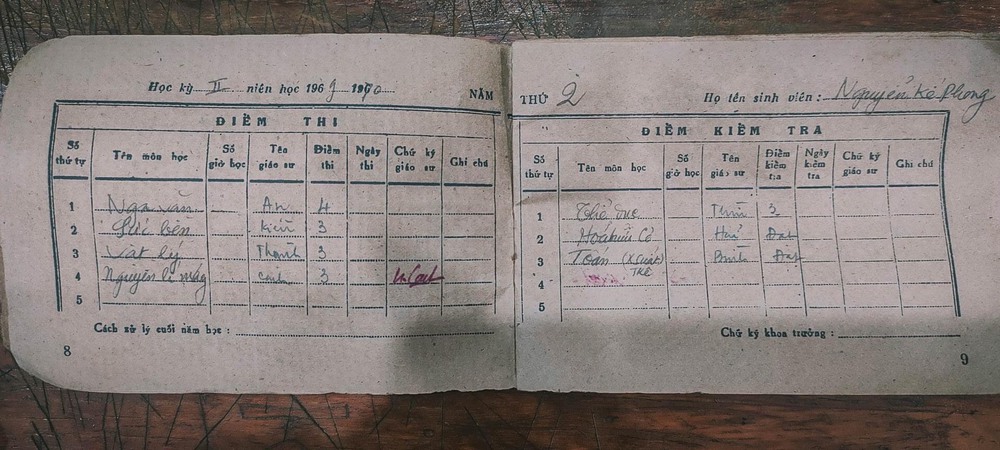 Học kỳ II niên học 1969 1970 NĂM
ĐIỂM THI
Số thứ tự Tên môn học Số giờ học Tên giáo sư Điểm thi Ngày thi Chữ ký giáo sư Ghi chú
1 Nga văn An 4
2 Sức bền Kiên 3
3 Vật lý Thành 3
4 Nguyên lí máy Canh 3
5
Cách xử lý cuối năm học :
8
THỨ 2 Họ tên sinh viên : Nguyễn Kế Phong
ĐIỂM KIỂM TRA
Số thứ tự Tên môn học Số giờ học Tên giáo sư Điểm kiểm tra Ngày kiểm tra Chữ ký giáo sư Ghi chú
1 Thể dục 3
2 Hoá Đạt
3 Toán (X suất) Bình Đạt
4
5
Chữ ký khoa trưởng :
9